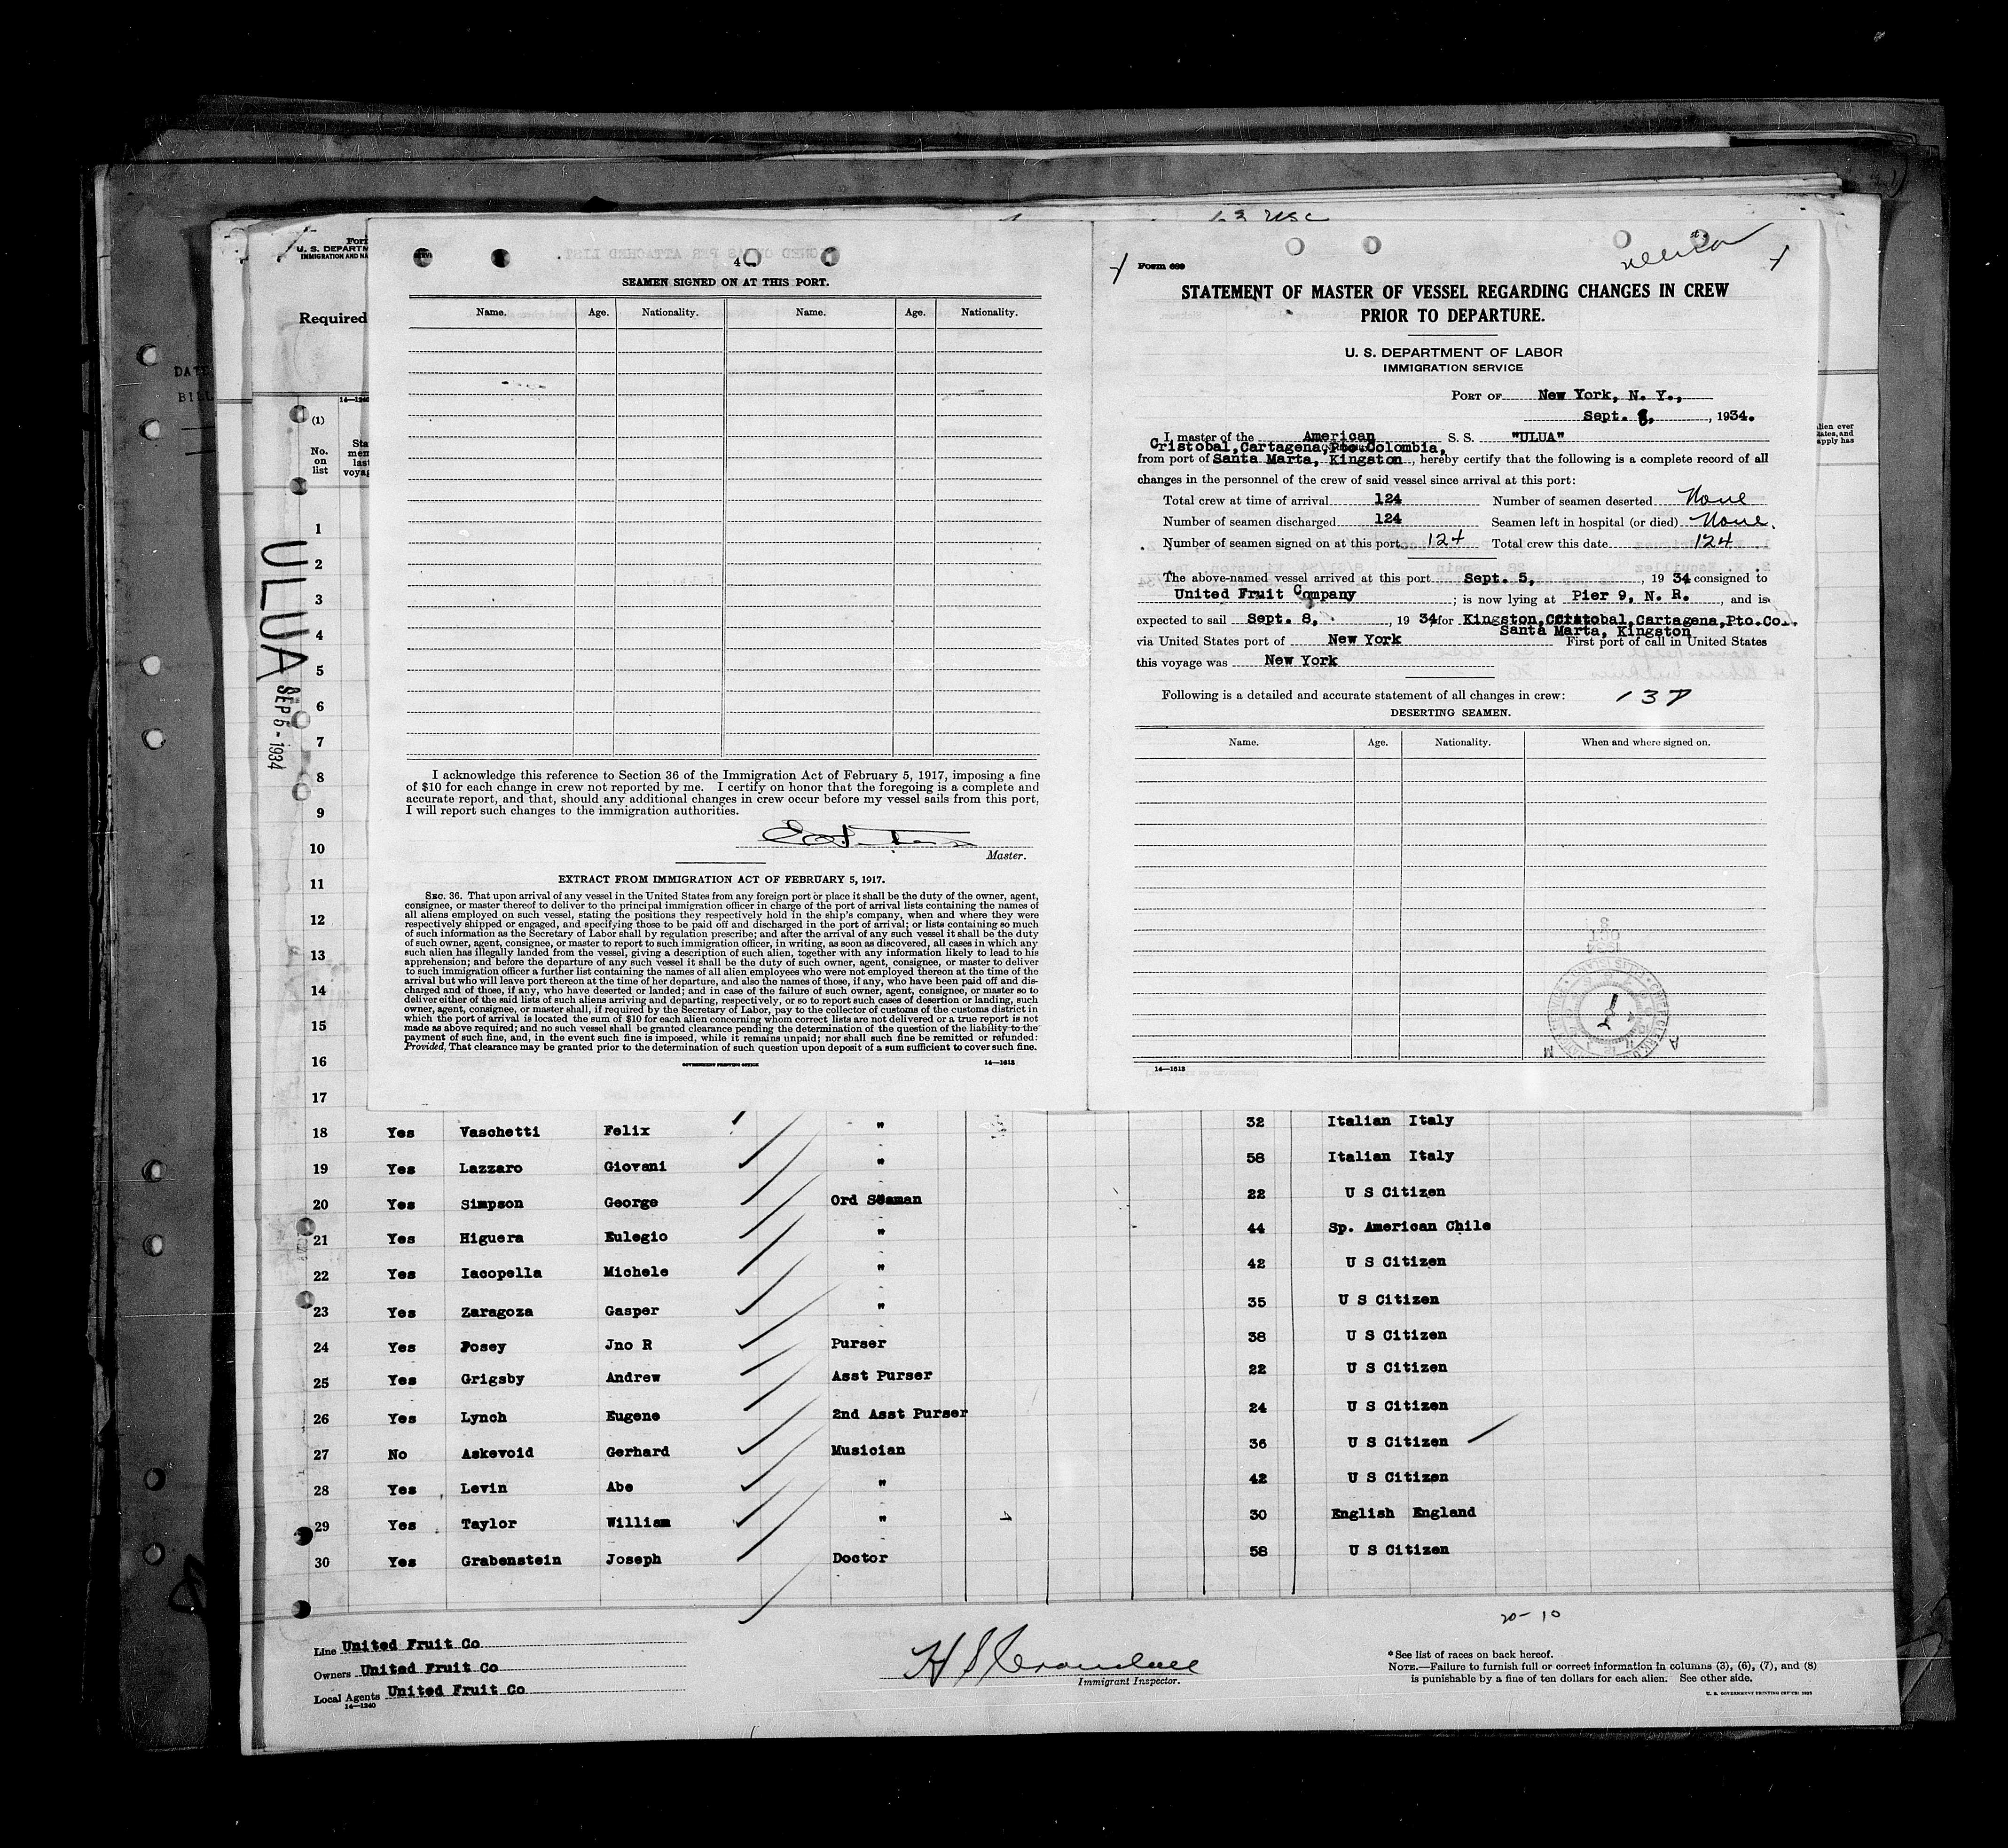 For
U. S. DEPARTM
IMMIGRATION AND NA
Required
14—1240
(1)
No.
on
list
Sta
men
las
voyag
DAT
BILL
ULUA
SEP 5 - 1934
4
SEAMEN SIGNED ON AT THIS PORT.
Name. Age. Nationality. Name. Age. Nationality.
I acknowledge this reference to Section 36 of the Immigration Act of February 5, 1917, imposing a fine
of $10 for each change in crew not reported by me. I certify on honor that the foregoing is a complete and
accurate report, and that, should any additional changes in crew occur before my vessel sails from this port,
I will report such changes to the immigration authorities.
Master.
EXTRACT FROM IMMIGRATION ACT OF FEBRUARY 5, 1917.
SEC. 36. That upon arrival of any vessel in the United States from any foreign port or place it shall be the duty of the owner, agent,
consignee, or master thereof to deliver to the principal immigration officer in charge of the port of arrival lists containing the names of
all aliens employed on such vessel, stating the positions they respectively hold in the ship's company, when and where they were
respectively shipped or engaged, and specifying those to be paid off and discharged in the port of arrival; or lists containing so much
of such information as the Secretary of Labor shall by regulation prescribe; and after the arrival of any such vessel it shall be the duty
of such owner, agent, consignee, or master to report to such immigration officer, in writing, as soon as discovered, all cases in which any
such alien has illegally landed from the vessel, giving a description of such alien, together with any information likely to lead to his
apprehension; and before the departure of any such vessel it shall be the duty of such owner, agent, consignee, or master to deliver
to such immigration officer a further list containing the names of all alien employees who were not employed thereon at the time of the
arrival but who will leave port thereon at the time of her departure, and also the names of those, if any, who have been paid off and dis-
charged and of those, if any, who have deserted or landed; and in case of the failure of such owner, agent, consignee, or master so to
deliver either of the said lists of such aliens arriving and departing, respectively, or so to report such cases of desertion or landing, such
owner, agent, consignee, or master shall, if required by the Secretary of Labor, pay to the collector of customs of the customs district in
which the port of arrival is located the sum of $10 for each alien concerning whom correct lists are not delivered or a true report is not
made as above required; and no such vessel shall be granted clearance pending the determination of the question of the liability to the
payment of such fine, and, in the event such fine is imposed, while it remains unpaid; nor shall such fine be remitted or refunded:
Provided, That clearance may be granted prior to the determination of such question upon deposit of a sum sufficient to cover such fine.
GOVERNMENT PRINTING OFFICE 14—1613
Form 689
STATEMENT OF MASTER OF VESSEL REGARDING CHANGES IN CREW
PRIOR TO DEPARTURE.
U. S. DEPARTMENT OF LABOR
IMMIGRATION SERVICE
PORT OF New York, N. Y.,
Sept. 8, , 1934.
I, master of the American S. S. "ULUA"
Cristobal,Cartagena,Pto.Colombia,
from port of Santa Marta, Kingston , hereby certify that the following is a complete record of all
changes in the personnel of the crew of said vessel since arrival at this port:
Total crew at time of arrival 124 Number of seamen deserted None
Number of seamen discharged 124 Seamen left in hospital (or died) None.
Number of seamen signed on at this port 124 Total crew this date 124
The above-named vessel arrived at this port Sept. 5, , 19 34 consigned to
United Fruit Company ; is now lying at Pier 9, N. R. , and is
expected to sail Sept. 8, , 19 34 for Kingston,Cristobal,Cartagena,Pto.Co.
Santa Marta, Kingston
via United States port of New York First port of call in United States
this voyage was New York
Following is a detailed and accurate statement of all changes in crew: 137
DESERTING SEAMEN.
Name. Age. Nationality. When and where signed on.
14—1613
lien ever
tates, and
apply has
1
2
3
4
5
6
7
8
9
10
11
12
13
14
15
16
17
18 Yes Vaschetti Felix " 32 Italian Italy
19 Yes Lazzaro Giovani " 58 Italian Italy
20 Yes Simpson George Ord Seaman 22 U S Citizen
21 Yes Higuera Eulegio " 44 Sp. American Chile
22 Yes Iacopella Michele " 42 U S Citizen
23 Yes Zaragoza Gasper " 35 U S Citizen
24 Yes Posey Jno R Purser 38 U S Citizen
25 Yes Grigsby Andrew Asst Purser 22 U S Citizen
26 Yes Lynch Eugene 2nd Asst Purser 24 U S Citizen
27 No Askevoid Gerhard Musician 36 U S Citizen
28 Yes Levin Abe " 42 U S Citizen
29 Yes Taylor William " 30 English England
30 Yes Grabenstein Joseph Doctor 58 U S Citizen
20-10
Line United Fruit Co
Owners United Fruit Co
Local Agents United Fruit Co
14—1240
H S Crandall
Immigrant Inspector.
*See list of races on back hereof.
NOTE.—Failure to furnish full or correct information in columns (3), (6), (7), and (8)
is punishable by a fine of ten dollars for each alien. See other side.